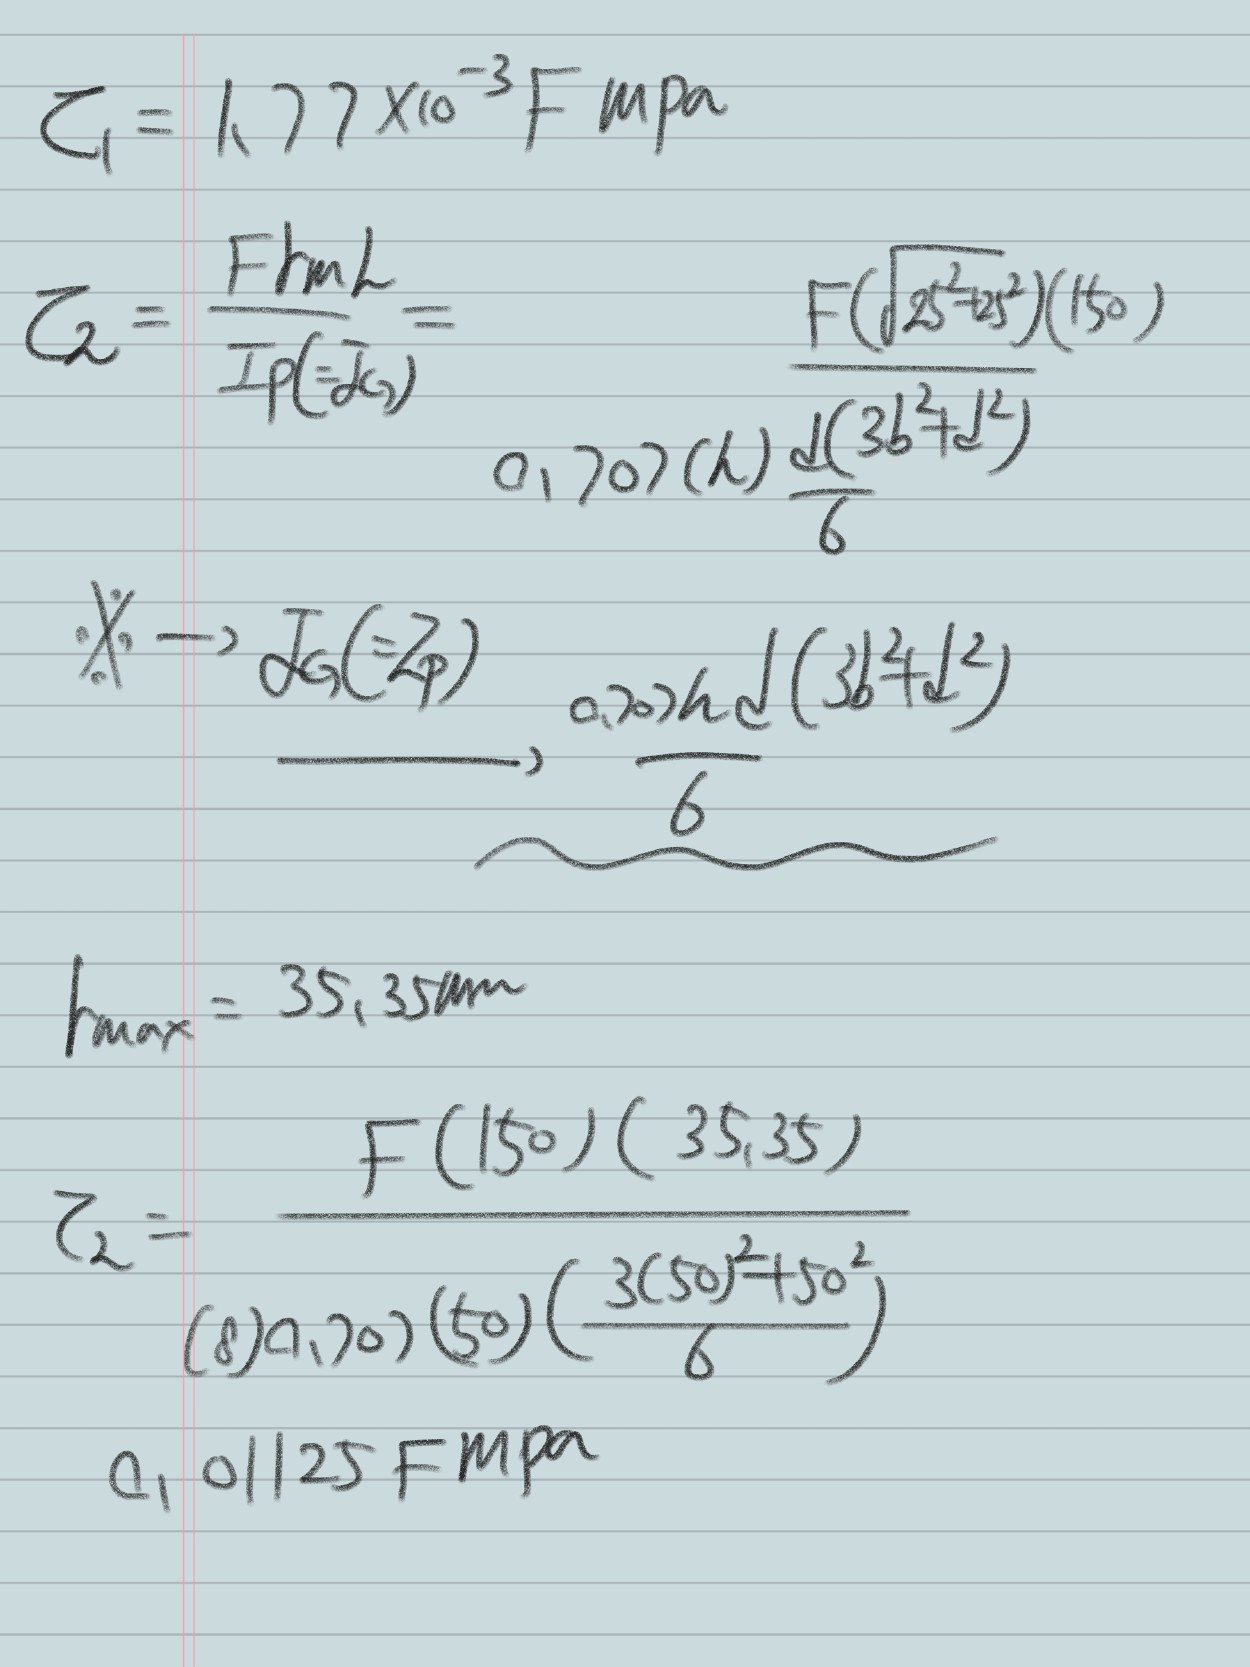 τ₁ = 1.77 ×10⁻³ F mpa
τ₂ = F rm L / Ip(=JG) = F(√25²+25²)(150) / 0.707(h) d(3b²+d²)/6
※ → JG(=Zp)
→ 0.707h d(3b²+d²) / 6
rmax = 35.35mm
τ₂ = F(150)(35.35) / (8)0.707(50)(3(50)²+50² / 6)
0.01125 F Mpa